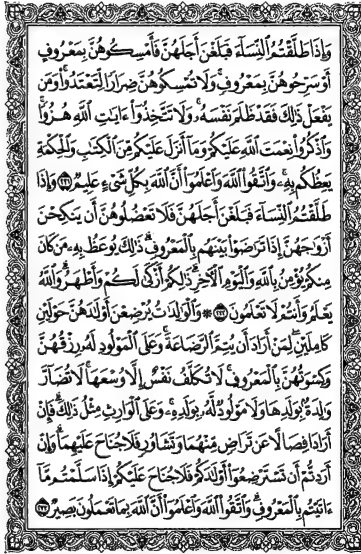 وَإِذَا طَلَّقْتُمُ ٱلنِّسَآءَ فَبَلَغْنَ أَجَلَهُنَّ فَأَمْسِكُوهُنَّ بِمَعْرُوفٍ
أَوْ سَرِّحُوهُنَّ بِمَعْرُوفٍ ۚ وَلَا تُمْسِكُوهُنَّ ضِرَارًا لِّتَعْتَدُوا۟ ۚ وَمَن
يَفْعَلْ ذَٰلِكَ فَقَدْ ظَلَمَ نَفْسَهُۥ ۚ وَلَا تَتَّخِذُوٓا۟ ءَايَٰتِ ٱللَّهِ هُزُوًا ۚ
وَٱذْكُرُوا۟ نِعْمَتَ ٱللَّهِ عَلَيْكُمْ وَمَآ أَنزَلَ عَلَيْكُم مِّنَ ٱلْكِتَٰبِ وَٱلْحِكْمَةِ
يَعِظُكُم بِهِۦ ۚ وَٱتَّقُوا۟ ٱللَّهَ وَٱعْلَمُوٓا۟ أَنَّ ٱللَّهَ بِكُلِّ شَىْءٍ عَلِيمٌ ٢٣١ وَإِذَا
طَلَّقْتُمُ ٱلنِّسَآءَ فَبَلَغْنَ أَجَلَهُنَّ فَلَا تَعْضُلُوهُنَّ أَن يَنكِحْنَ
أَزْوَٰجَهُنَّ إِذَا تَرَٰضَوْا۟ بَيْنَهُم بِٱلْمَعْرُوفِ ۗ ذَٰلِكَ يُوعَظُ بِهِۦ مَن كَانَ
مِنكُمْ يُؤْمِنُ بِٱللَّهِ وَٱلْيَوْمِ ٱلْءَاخِرِ ۗ ذَٰلِكُمْ أَزْكَىٰ لَكُمْ وَأَطْهَرُ ۗ وَٱللَّهُ
يَعْلَمُ وَأَنتُمْ لَا تَعْلَمُونَ ٢٣٢ ۞ وَٱلْوَٰلِدَٰتُ يُرْضِعْنَ أَوْلَٰدَهُنَّ حَوْلَيْنِ
كَامِلَيْنِ ۖ لِمَنْ أَرَادَ أَن يُتِمَّ ٱلرَّضَاعَةَ ۚ وَعَلَى ٱلْمَوْلُودِ لَهُۥ رِزْقُهُنَّ
وَكِسْوَتُهُنَّ بِٱلْمَعْرُوفِ ۚ لَا تُكَلَّفُ نَفْسٌ إِلَّا وُسْعَهَا ۚ لَا تُضَآرَّ
وَٰلِدَةٌۢ بِوَلَدِهَا وَلَا مَوْلُودٌ لَّهُۥ بِوَلَدِهِۦ ۚ وَعَلَى ٱلْوَارِثِ مِثْلُ ذَٰلِكَ ۗ فَإِنْ
أَرَادَا فِصَالًا عَن تَرَاضٍ مِّنْهُمَا وَتَشَاوُرٍ فَلَا جُنَاحَ عَلَيْهِمَا ۗ وَإِنْ
أَرَدتُّمْ أَن تَسْتَرْضِعُوٓا۟ أَوْلَٰدَكُمْ فَلَا جُنَاحَ عَلَيْكُمْ إِذَا سَلَّمْتُم مَّآ
ءَاتَيْتُم بِٱلْمَعْرُوفِ ۗ وَٱتَّقُوا۟ ٱللَّهَ وَٱعْلَمُوٓا۟ أَنَّ ٱللَّهَ بِمَا تَعْمَلُونَ بَصِيرٌ ٢٣٣